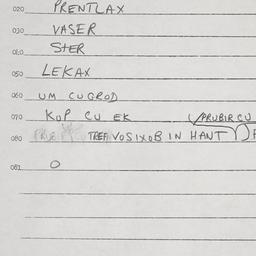 020 PRENTLAX
030 VASER
040 STER
050 LEKAX
060 UM CUGROD
070 KOP CU EK (PRUBIR CU
080 TREFI VOSIXOB IN HANT
081 O